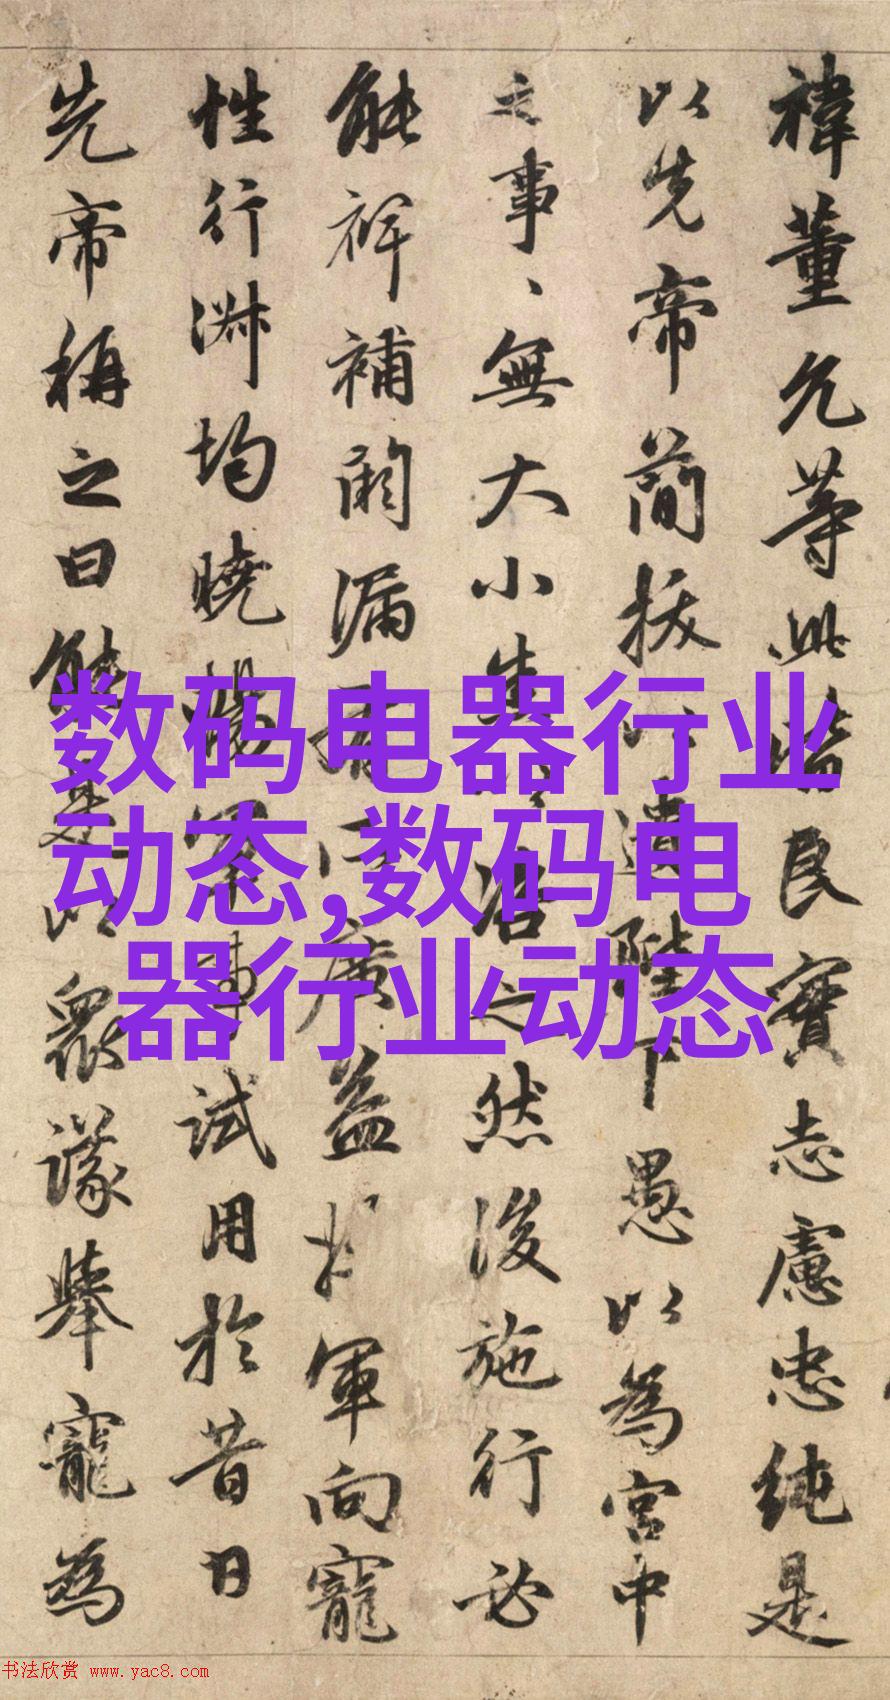 禕董允等此皆良實志慮忠純是
以先帝簡拔以遺陛下愚以為宮中
之事、無大小悉以咨之然後施行必
能裨補闕漏有所廣益將軍向寵
性行淑均曉暢軍事試用於昔日
先帝稱之曰能是以眾議舉寵為
数码电器行业
动态,数码电
器行业动态
书法欣赏 www.yac8.com